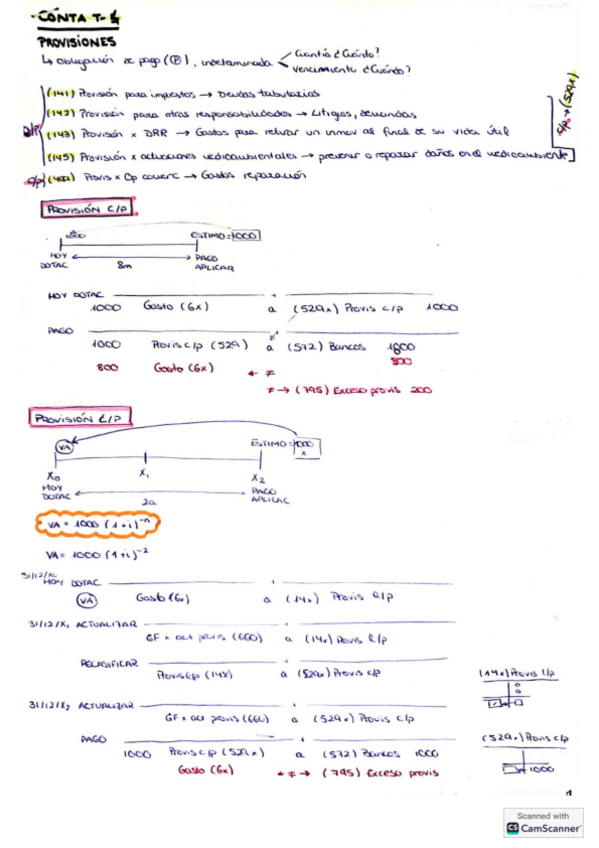 CONTA T-4
PROVISIONES
↳ Obligación de pago (P), indeterminada
Cuantía ¿Cuánto?
Vencimiento ¿Cuándo?
(141) Provisión para impuestos → Deudas tributarias
(142) Provisión para otras responsabilidades → Litigios, demandas
(143) Provisión x DRR → Gastos para retirar un inmov al final de su vida útil
(145) Provisión x actuaciones medioambientales → prevenir o reparar daños en el medioambiente
c/p → (529x)
c/p (499) Provis x Op comerc → Gastos reparación
PROVISIÓN C/P
1000 ESTIMO = 1000
HOY PAGO
DOTAC 8m APLICAR
HOY DOTAC
1000 Gasto (6x) a (529x) Provis c/p 1000
PAGO
1000 Provis c/p (529) a (572) Bancos 1000
800
800 Gasto (6x) + ≠
≠ → (795) Exceso provis 200
PROVISIÓN L/P
VA ESTIMO = 1000
x
X0 X1 X2
HOY PAGO
DOTAC 2a APLICAC
VA = 1000 (1+i)⁻ⁿ
VA = 1000 (1+i)⁻²
31/12/X0 HOY DOTAC
VA Gasto (6x) a (14x) Provis l/p
31/12/X1 ACTUALIZAR
GF x act provis (660) a (14x) Provis l/p
RECLASIFICAR
Provis l/p (14x) a (529x) Provis c/p
(14x) Provis l/p
31/12/X2 ACTUALIZAR
GF x act provis (660) a (529x) Provis c/p
PAGO
1000 Provis c/p (529x) a (572) Bancos 1000
Gasto (6x) + ≠ → (795) Exceso provis
(529x) Provis c/p
1000
1
Scanned with
CS CamScanner